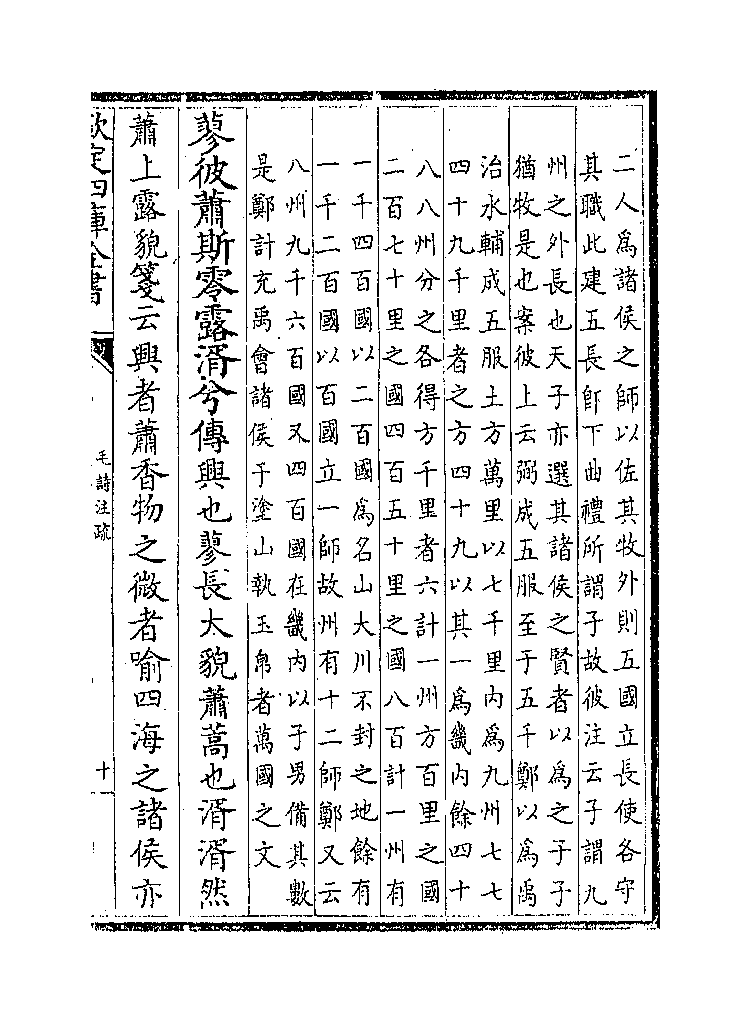 二人爲諸侯之師以佐其牧外則五國立長使各守
其職此建五長卽下曲禮所謂子故彼注云子謂九
州之外長也天子亦選其諸侯之賢者以爲之子子
猶牧是也案彼上云弼成五服至于五千鄭以爲禹
治水輔成五服土方萬里以七千里内爲九州七七
四十九千里者之方四十九以其一爲畿内餘四十
八八州分之各得方千里者六計一州方百里之國
二百七十里之國四百五十里之國八百計一州有
一千四百國以二百國爲名山大川不封之地餘有
一千二百國以百國立一師故州有十二師鄭又云
八州九千六百國又四百國在畿内以子男備其數
是鄭計充禹會諸侯于塗山執玉帛者萬國之文
蓼彼蕭斯零露湑兮傳興也蓼長大貌蕭蒿也湑湑然
蕭上露貌箋云興者蕭香物之微者喻四海之諸侯亦
欽定四庫全書
毛詩注疏
十一